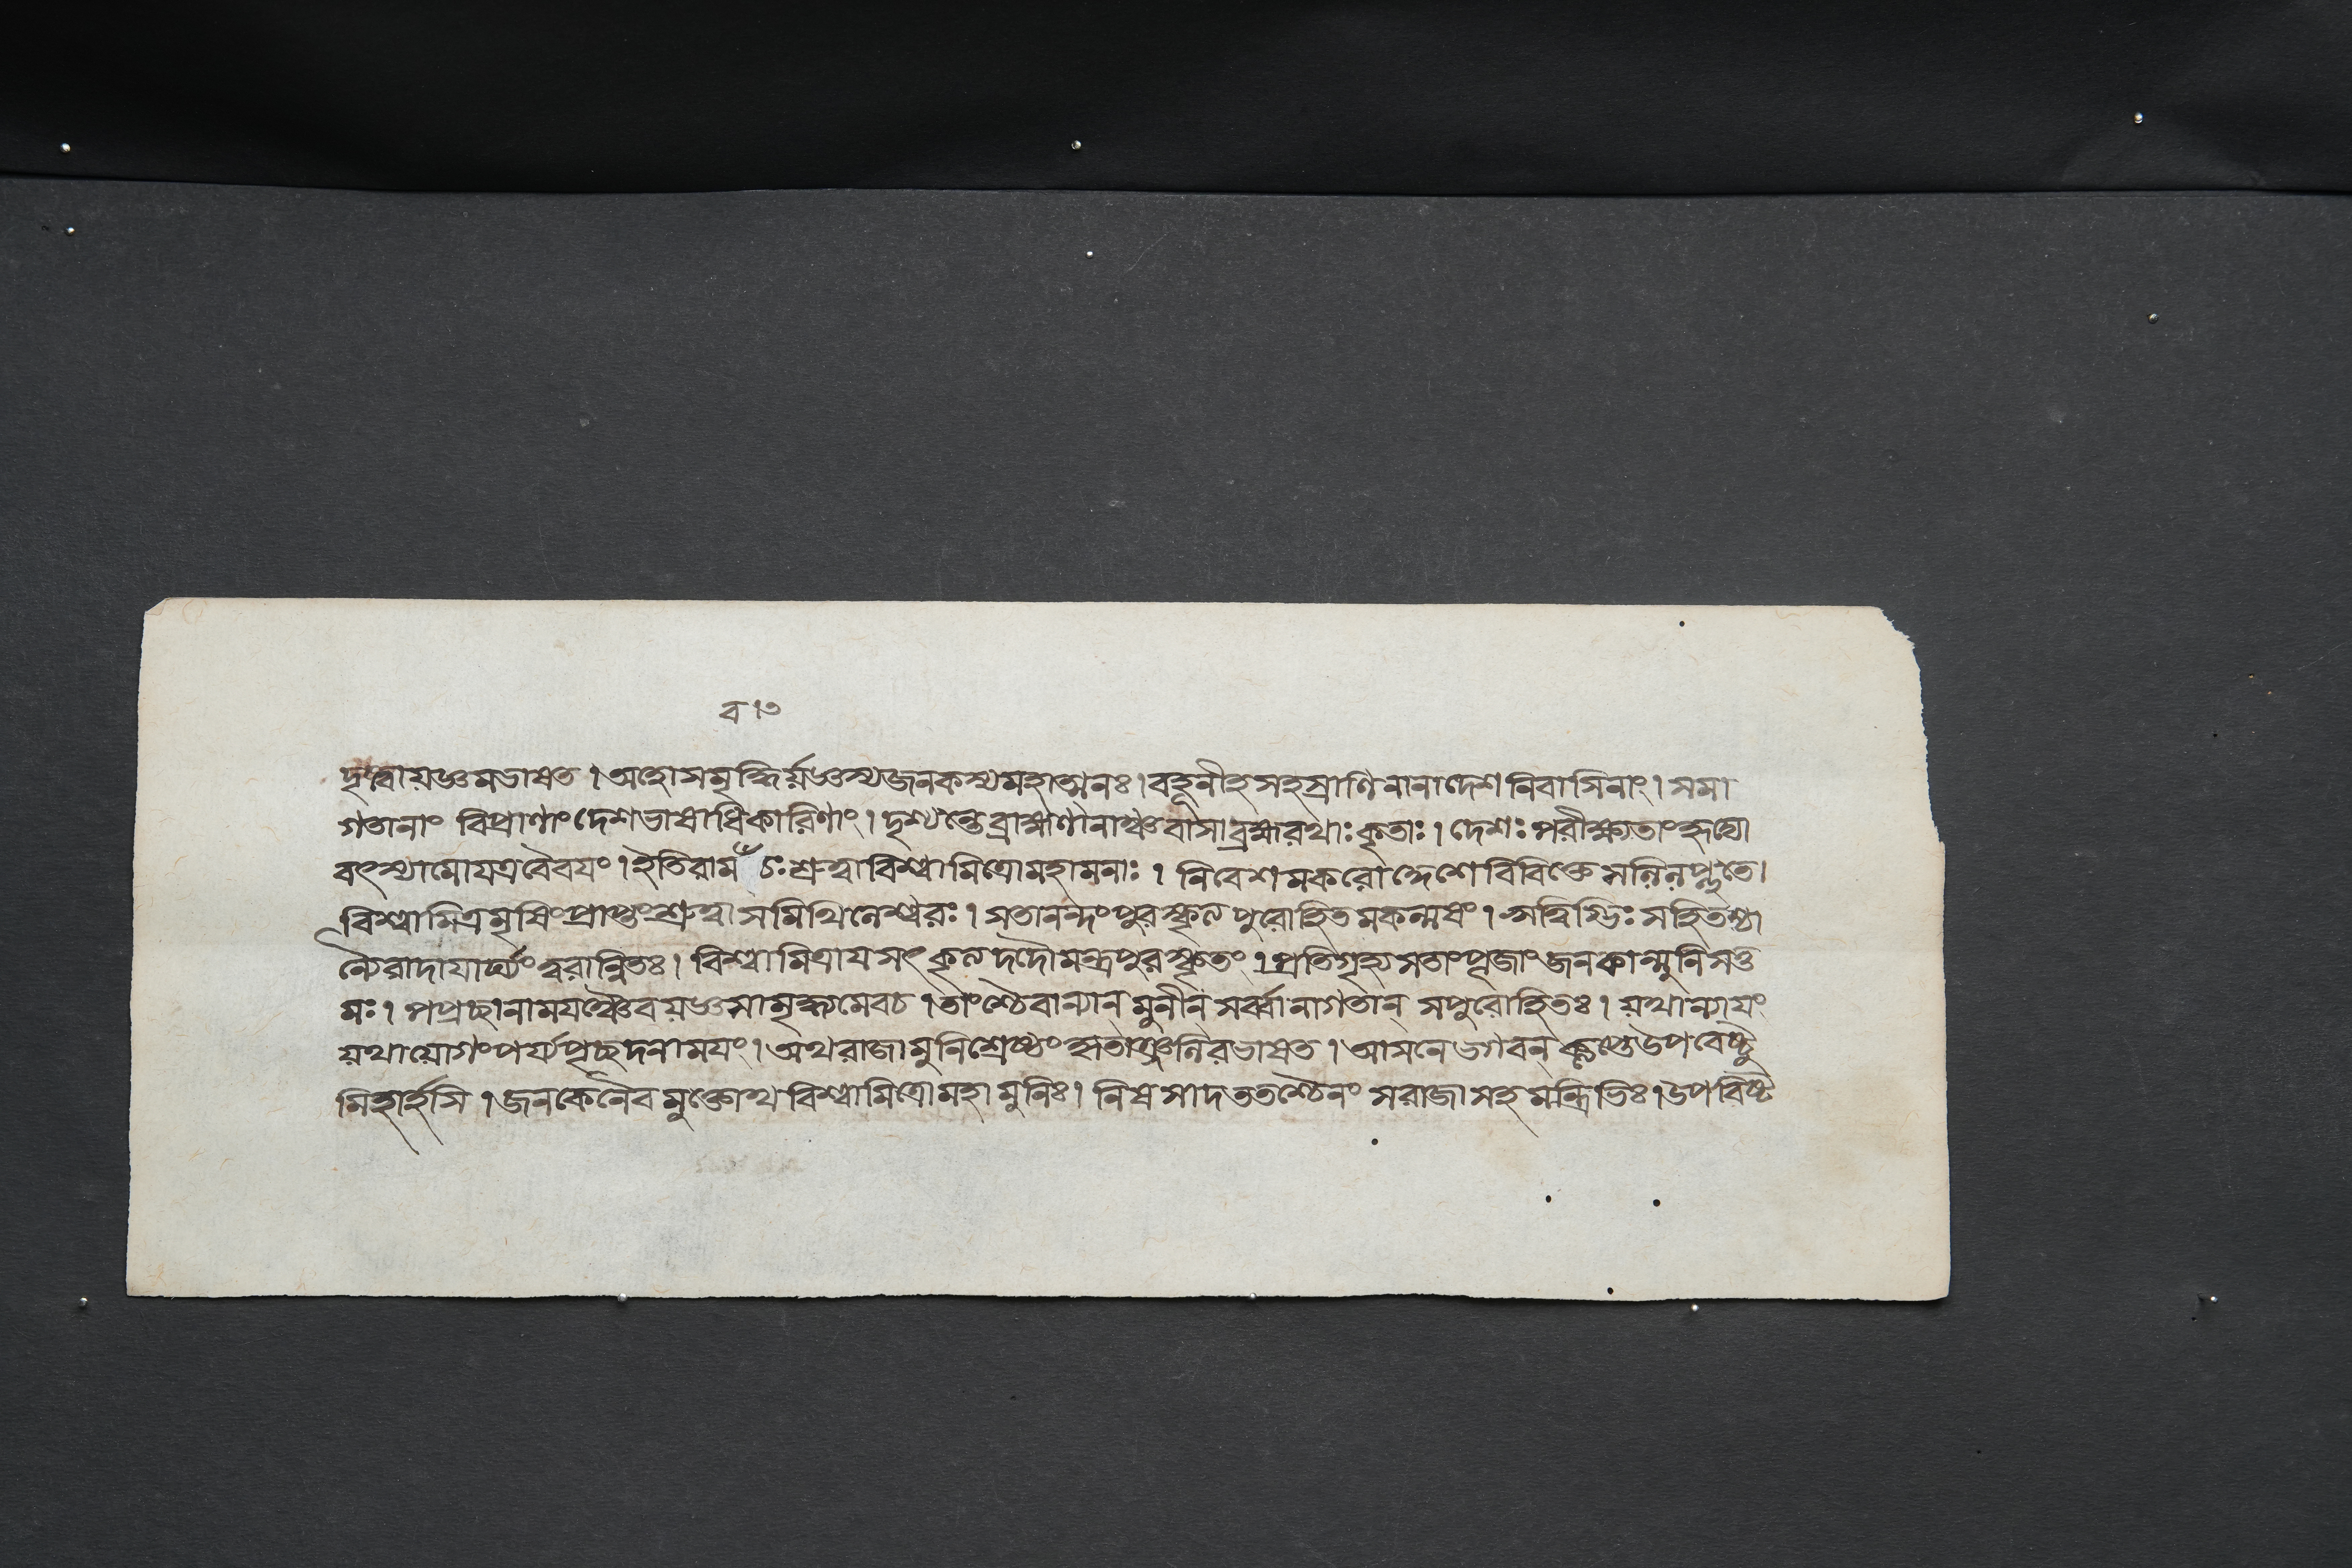 ব।৩
দৃষ্ট্বা য়জ্ঞমভাষত । অহোসমৃদ্ধির্য়জ্ঞস্যজনকস্যমহাত্মনঃ। বহূনীহসহস্রাণিনানাদেশনিবাসিনাং। সমা
গতানাং বিপ্রাণাংদেশভাষাধিকারিণাং। দৃশ্যন্তেব্রাহ্মণানাঞ্চ বাসাব্রহ্মরথাঃকৃতাঃ। দেশঃপরীক্ষ্যতাং
বৎস্যামোযত্রবৈবযং। ইতিরাম চঃশ্রুত্বাবিশ্বামিত্রোমহামনাঃ। নিবেশমকরোদ্দেশেবিবিক্তেসলিলপ্লুতে।
বিশ্বামিত্রমৃষিংপ্রাপ্তংশ্রুত্বাসমিথিলেশ্বরঃ। সতানন্দংপুরস্কৃত্যপুরোহিতমকল্মষং। ঋত্বিগ্ভিঃসহিতশ্চা
ন্যৈরাদাযার্ঘ্যংত্বরান্বিতঃ। বিশ্বামিত্রাযসৎকৃত্যদদৌমন্ত্রপুরস্কৃতং। প্রতিগৃহ্যসতাংপূজাংজনকান্মুনিসত্ত
মঃ। পপ্রচ্ছানাময়ঞ্চৈবয়জ্ঞসামৃদ্ধ্যমেবচ। তাংশ্চৈবান্যান্ মুনীন্ সর্ব্বানাগতান্ সপুরোহিতঃ। য়থান্যাযং
য়থাযোগংপর্য্যপৃচ্ছদনামযং। অথরাজামুনিশ্রেষ্ঠংকৃতাঞ্জলিরভাষত। আসনেভগবন্ কৢপ্তেউপবেষ্টু
মিহার্হসি। জনকেনৈবমুক্তোথবিশ্বামিত্রোমহামুনিঃ। নিষসাদততশ্চৈনংসরাজাসহমন্ত্রিভিঃ। উপবিষ্ট